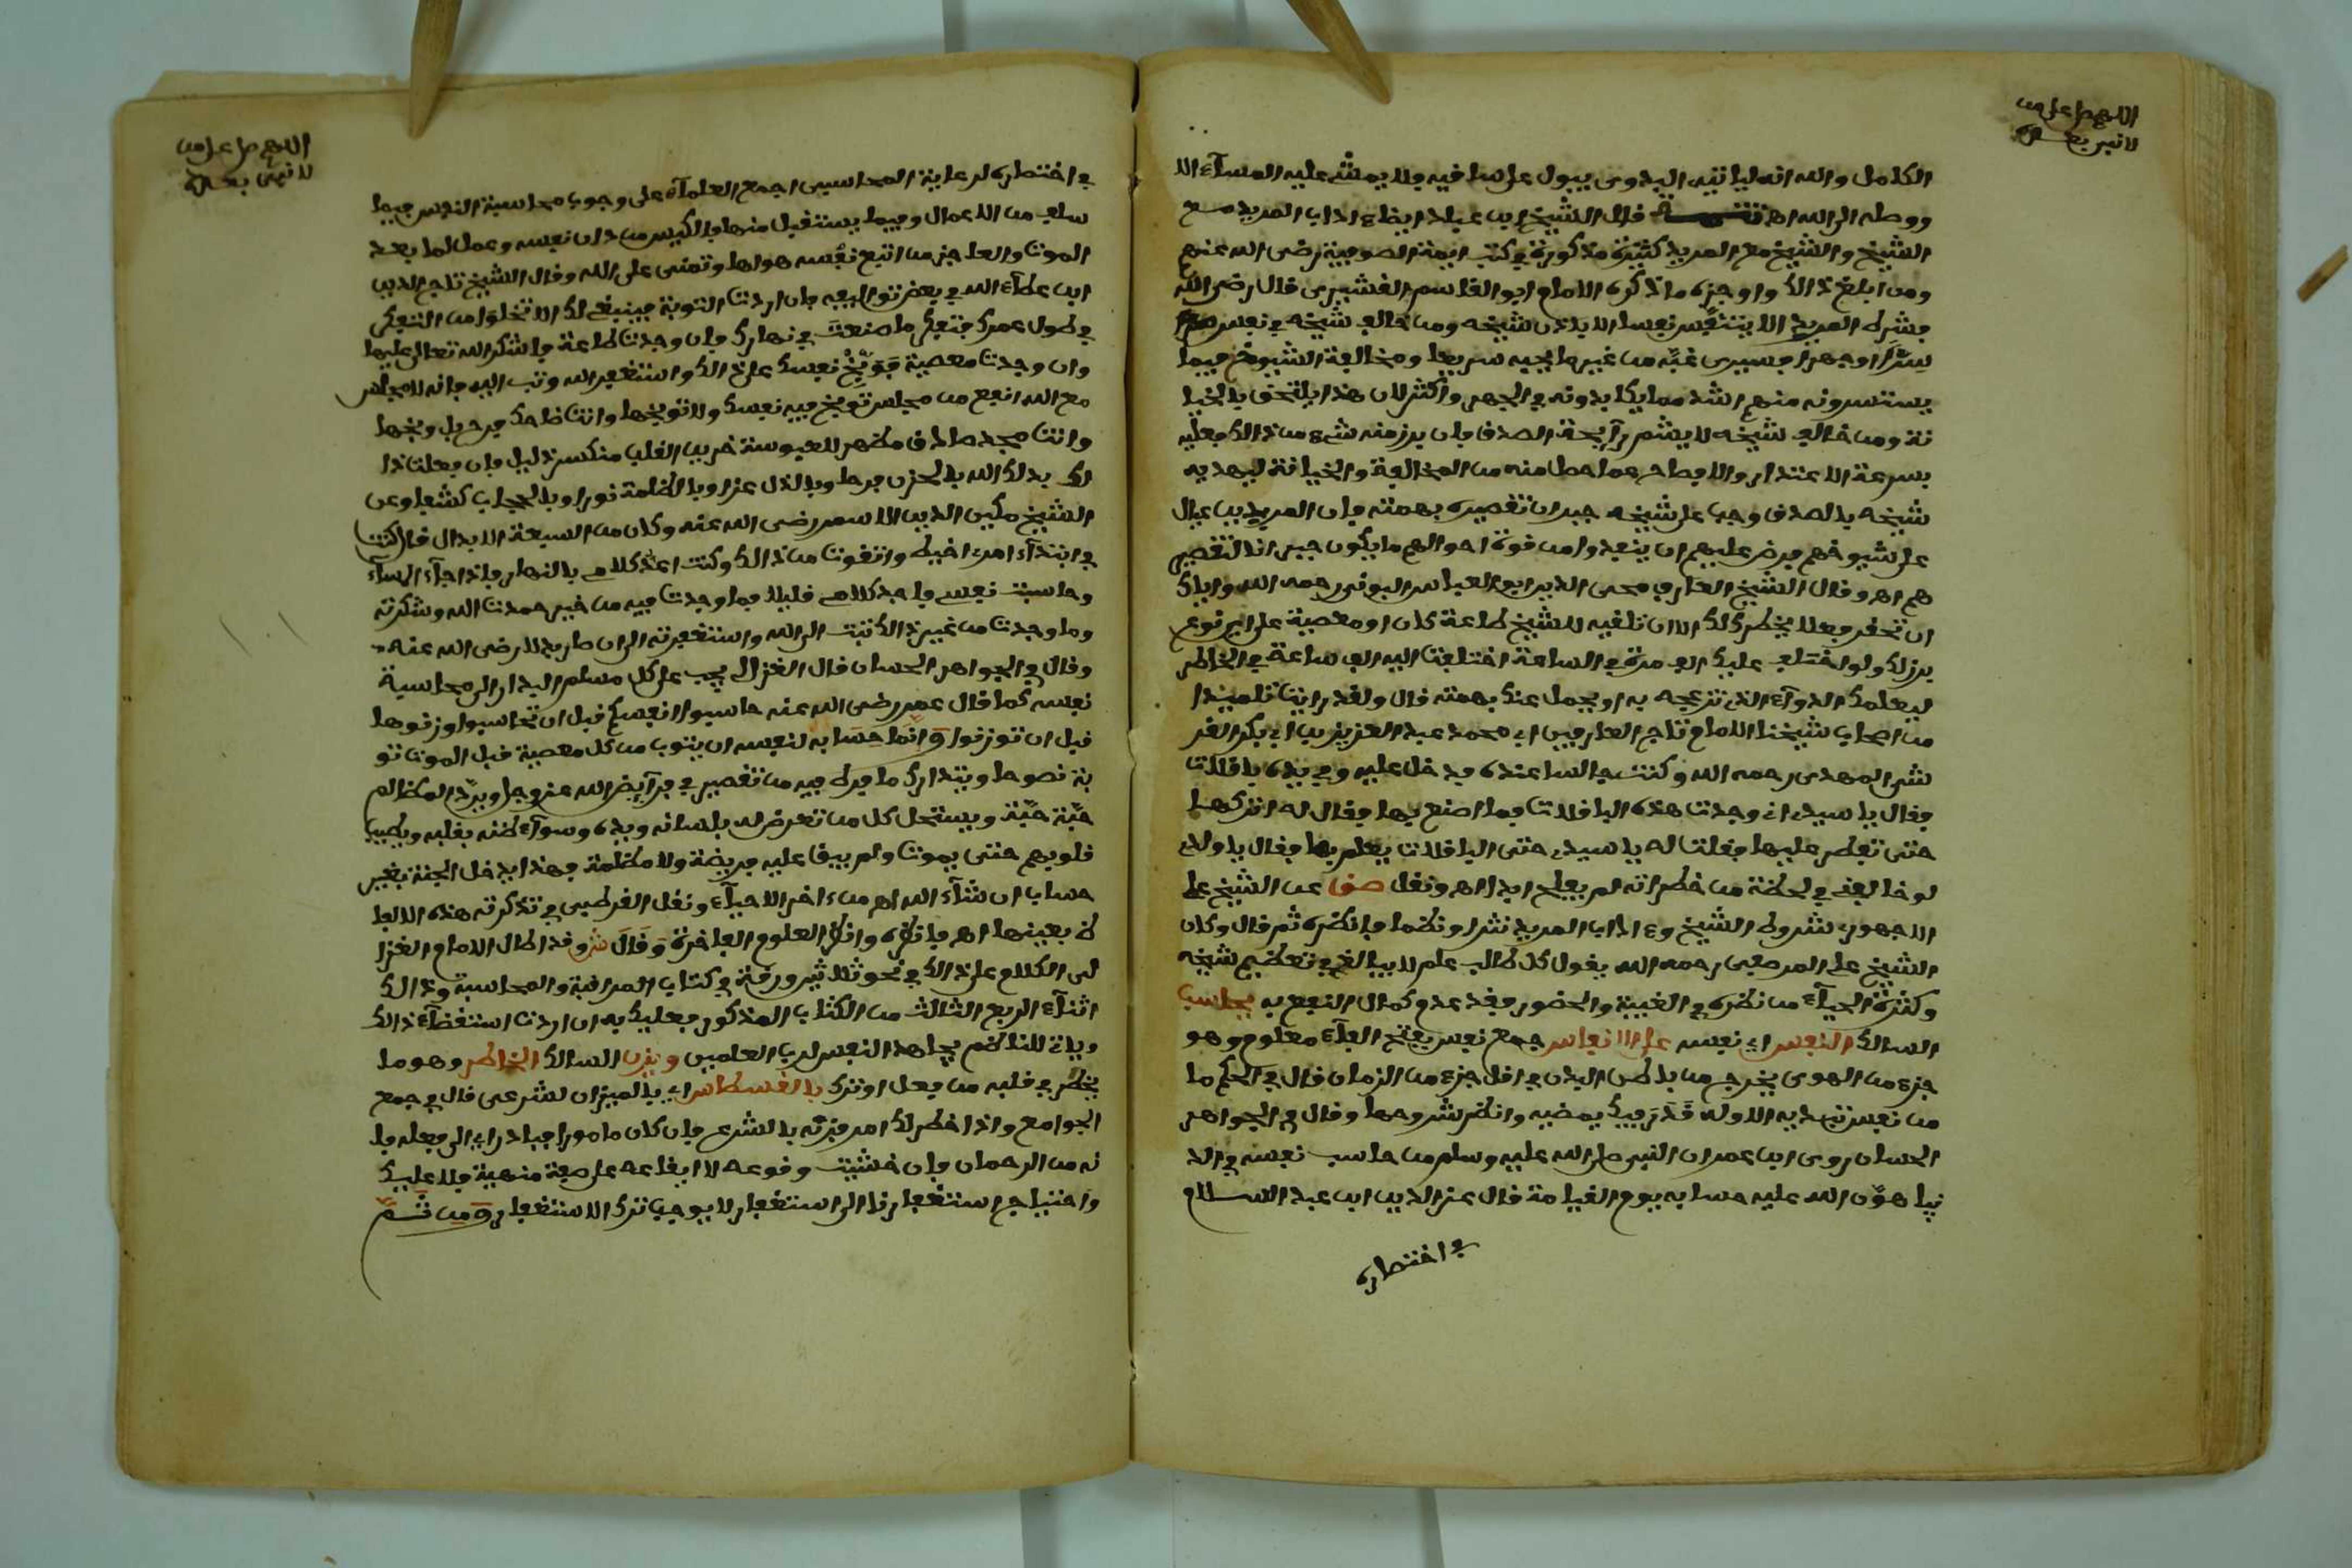 اللهم صل على من
لا نبي بعده
الكامل والله انه لياتيه البدوي يبول على ساقيه ولا يمشي عليه المساء الا
ووصله الى الله اهـ قال الشيخ ابن عباد ايضا واداب المريد مع
الشيخ والشيخ مع المريد كثيرة مذكورة في كتب ايمة الصوفية رضي الله عنهم
ومن ابلغ ذالك واوجزه ما ذكره الامام ابو القاسم القشيري قال رضي الله
بشرط المريد الا يتنفس نفسا الا باذن شيخه ومن خالف شيخه في نفس
سرا او جهرا فسيرى غبه من غير ما يحبه سريعا ومخالفة الشيوخ فيما
يستسرونه منهم اشد مما يكابدونه في الجهر واكثر لان هذا يلتحق بالخيا
نة ومن خالف شيخه لا يشم رايحة الصدق فان بدر منه شيء من ذالك فعليه
بسرعة الاعتذار والافصاح عما حصل منه من المخالفة والخيانة ليهديه
شيخه بالصدق وجب على شيخه جبران تقصيره بهمته فان المريدين عيال
على شيوخهم فرض عليهم ان ينفدوا من قوة احوالهم ما يكون جبرانا لتقصير
هم اهـ وقال الشيخ العارف محيي الدين ابو العباس البوني رحمه الله واياك
ان تحفر فعلا يخطر لك الا ان تلقيه للشيخ طاعة كان او معصية على اي نوع
برز لك ولو اختلف عليك الف مرة في الساعة اختلفت اليه الف ساعة في الخاطر
ليعلمك الدواء الذي تزعجه به او يحمل عنك بهمته قال ولقد رايت تلميذا
من اصحاب شيخنا الامام تاج العارفين ابي محمد عبد العزيز بن ابي بكر القر
شي المهدي رحمه الله وكنت جالسا عنده فدخل عليه وفي يده باقلات
فقال يا سيدي اني وجدت هذه الباقلات فما اصنع بها فقال له اتركها
حتى تفطر عليها فقلت له يا سيدي حتى الباقلات يعلم بها فقال يا ولدي
لو خالفني في لحظة من خطراته لم يفلح ابدا اهـ ونقل صف عن الشيخ علي
الاجهوري شروط الشيخ واداب المريد نثرا ونظما فانظره ثم قال وكان
الشيخ علي المرصفي رحمه الله يقول كل طالب علم لا يبالغ في تعظيم شيخه
وكثرة الحياء من نظره في الغيبة والحضور فقد عدم كمال النفع به يحاسب
السالك النفس اي نفسه على الانفاس جمع نفس بفتح الفاء معلوم وهو
جزء من الهوى يخرج من باطن البدن في اقل جزء من الزمان قال في الحكم ما
من نفس تبديه الا وله قدر فيك يمضيه وانظر شروحها وقال في الجواهر
الحسان روى ابن عمر ان النبي صلى الله عليه وسلم من حاسب نفسه في الد
نيا هون الله عليه حسابه يوم القيامة قال عز الدين ابن عبد السلام
في اختصاره
اللهم صل على من
لا نبي بعده
في اختصاره لرعاية المحاسبي اجمع العلماء على وجوب محاسبة النفس فيما
سلف من الاعمال وفيما يستقبل منها فالكيس من دان نفسه وعمل لما بعد
الموت والعاجز من اتبع نفسه هواها وتمنى على الله وقال الشيخ تاج الدين
ابن عطاء الله في بعض تواليفه فان اردت التوبة فينبغي لك الا تخلوا من التفكر
في طول عمرك فتفكر ما صنعت في نهارك فان وجدت طاعة فاشكر الله تعالى عليها
وان وجدت معصية فوبخ نفسك على ذالك واستغفر الله وتب اليه فانه لا مجلس
مع الله انفع من مجلس توبخ فيه نفسك ولا توبخها وانت ضاحك فرح بل وبخها
وانت مجد صادق مظهر للعبوسة حزين القلب منكسر ذليل فان فعلت ذا
لك بدلك الله بالحزن فرحا وبالذل عزا وبالظلمة نورا وبالحجاب كشفا وعن
الشيخ مكين الدين الاسمر رضي الله عنه وكان من السبعة الابدال قال كنت
في ابتداء امري اخيط واتقوت من ذالك وكنت اعد كلامي بالنهار فاذا جاء المساء
وحاسبت نفسي فاجد كلامي قليلا فما وجدت فيه من خير حمدت الله وشكرته
وما وجدت من غير ذالك تبت الى الله واستغفرته الى ان صار بدلا رضي الله عنه
وقال في الجواهر الحسان قال الغزالي يجب على كل مسلم البدار الى محاسبة
نفسه كما قال عمر رضي الله عنه حاسبوا انفسكم قبل ان تحاسبوا وزنوها
قبل ان توزنوا وانما حسابه لنفسه ان يتوب من كل معصية قبل الموت تو
بة نصوحا ويتدارك ما فرط فيه من تقصير في فرائض الله عز وجل ويرد المظالم
حبة حبة ويستحل كل من تعرض له بلسانه ويده وسوء ظنه بقلبه ويطيب
قلوبهم حتى يموت ولم يبق عليه فريضة ولا مظلمة فهذا يدخل الجنة بغير
حساب ان شاء الله اهـ من اخر الاحياء ونقل القرطبي في تذكرته هذه الالفا
ظ بعينها اهـ فانظره وانظر العلوم الفاخرة وقال شر وقد اطال الامام الغزا
لي الكلام على ذالك في نحو ثلاثين ورقة في كتاب المراقبة والمحاسبة وذالك
اثناء الربع الثالث من الكتاب المذكور فعليك به ان اردت استقصاء ذالك
وياتي للناظم يجاهد النفس لرب العلمين ويزن السالك الخاطر وهو ما
يخطر في قلبه من فعل او ترك بالقسطاس اي بالميزان الشرعي قال في جمع
الجوامع واذا خطر لك امر فزنه بالشرع فان كان مامورا فبادر اي الى فعله فا
نه من الرحمان فان خشيت وقوعه لا ايقاعه على صفة منهية فلا عليك
واحتياج استغفارنا الى استغفار لا يوجب ترك الاستغفار ومن ثم